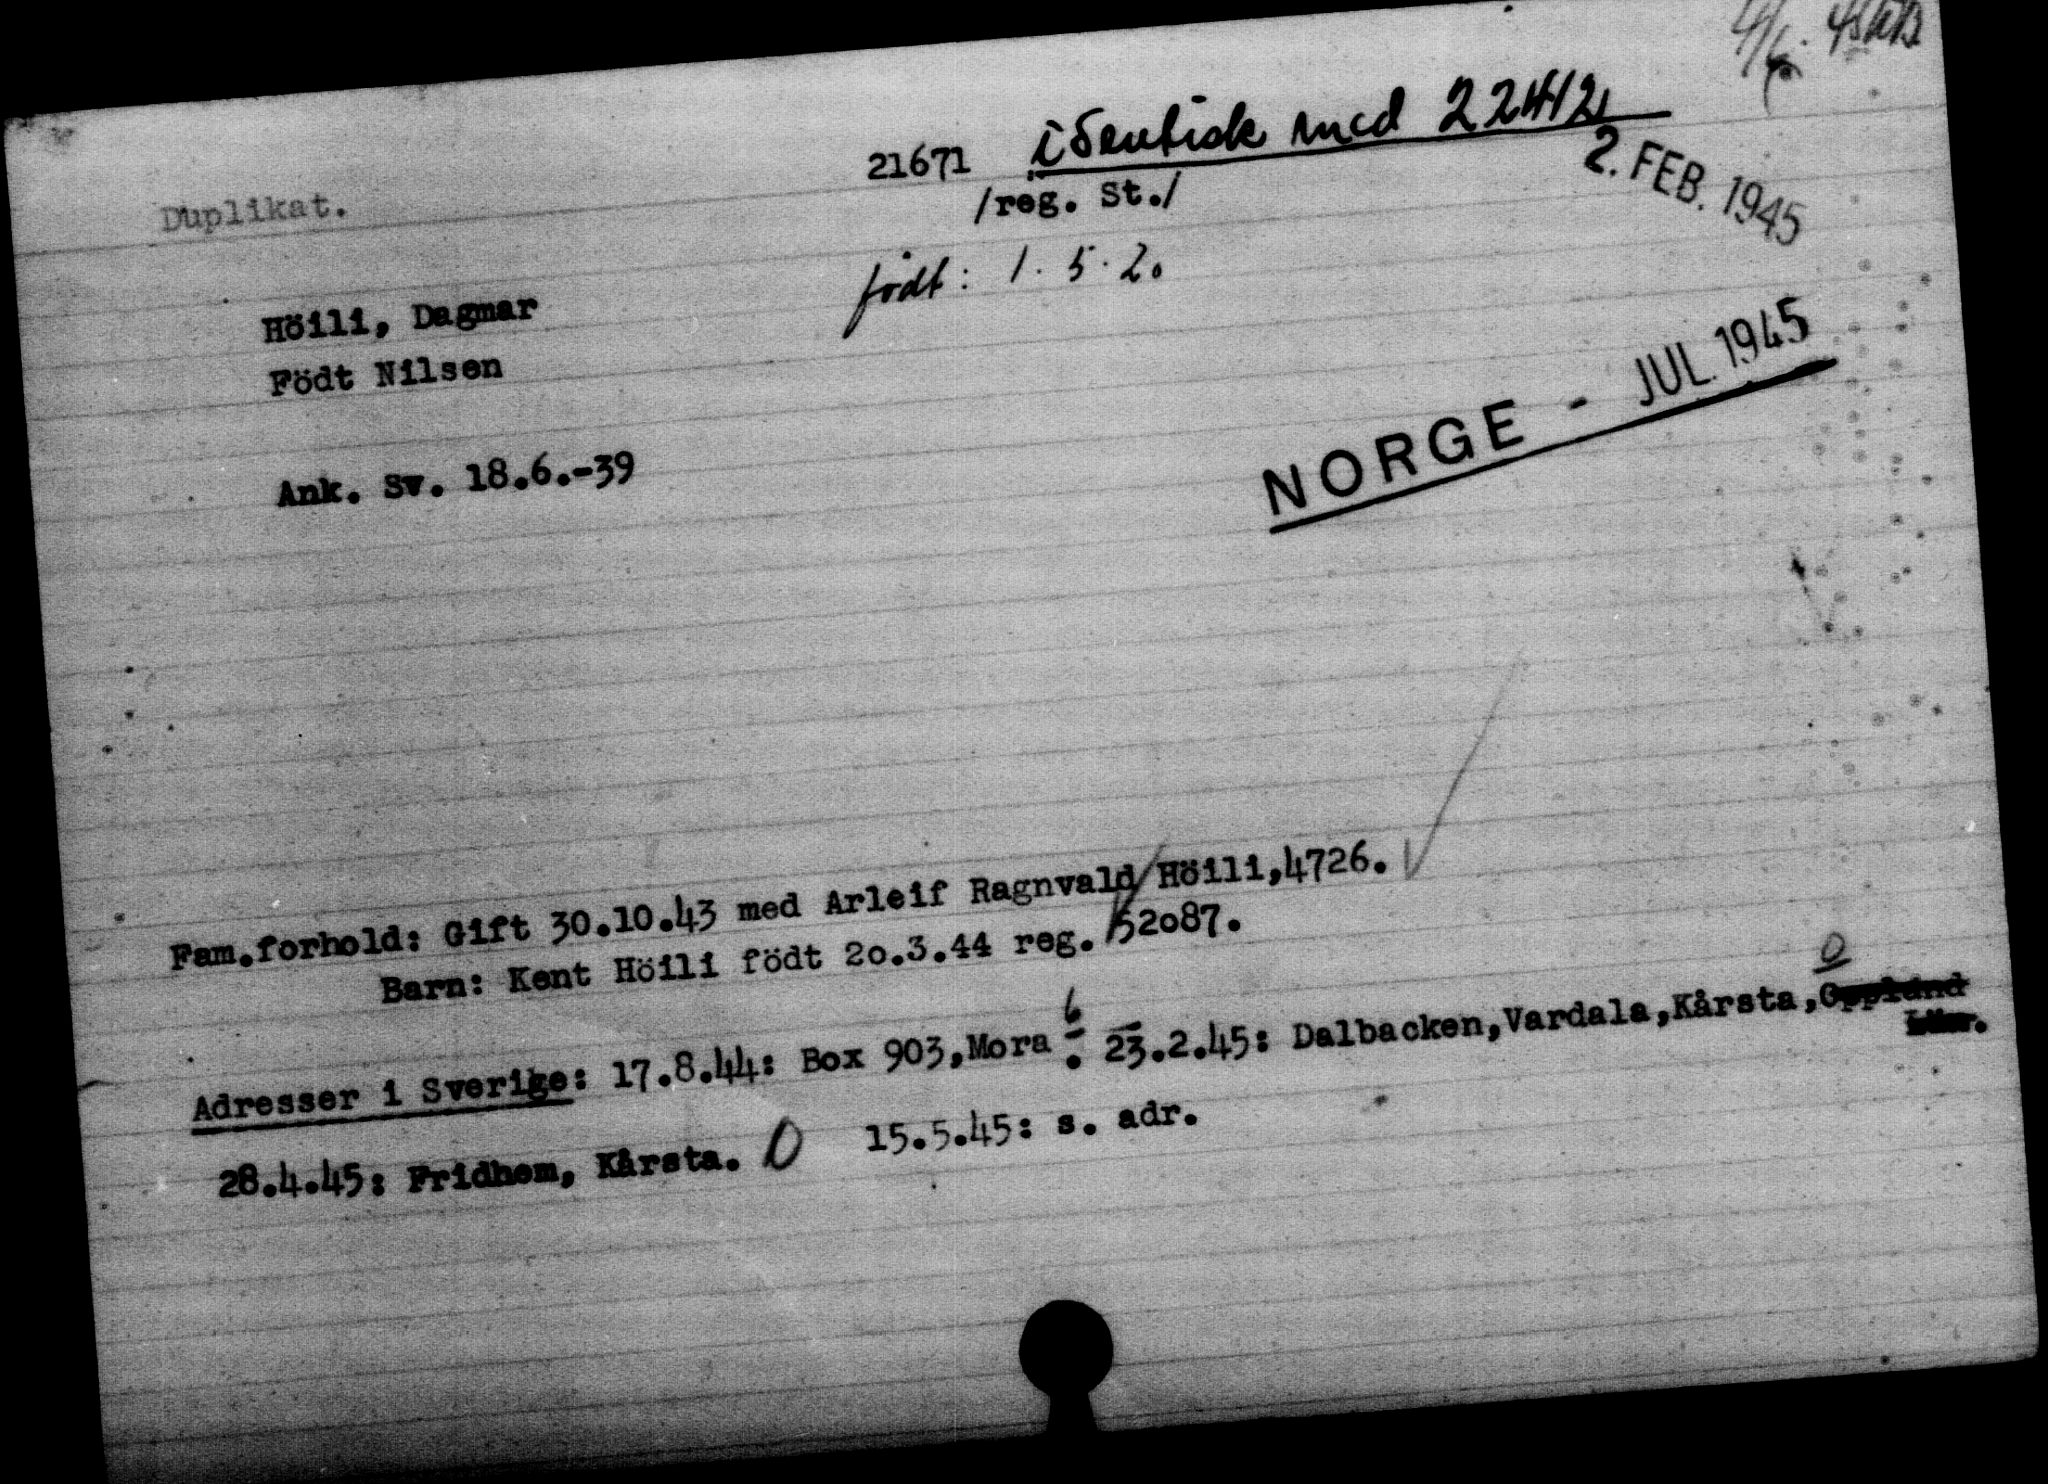 Duplikat.
21671 identisk med 22412
/reg. St./
2. FEB. 1945
Höili, Dagmar
född: 1.5.2.
Född Nilsen
NORGE - JUL. 1945
Ank. Sv. 18.6.-39
Fam.forhold: Gift 30.10.43 med Arleif Ragnvald Höili,4726.
Barn: Kent Höili födt 20.3.44 reg. 52087.
Adresser i Sverige: 17.8.44: Box 903,Mora 6. 23.2.45: Dalbacken,Vardala,Kårsta,Oppland
Län.
28.4.45: Fridhem, Kårsta. O 15.5.45: s. adr.